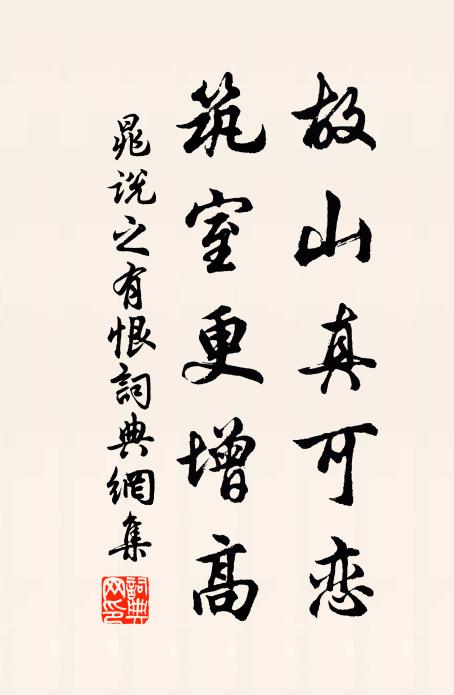 故山真可恋
筑室更增高
晁说之有恨詞典網集
詞典网印